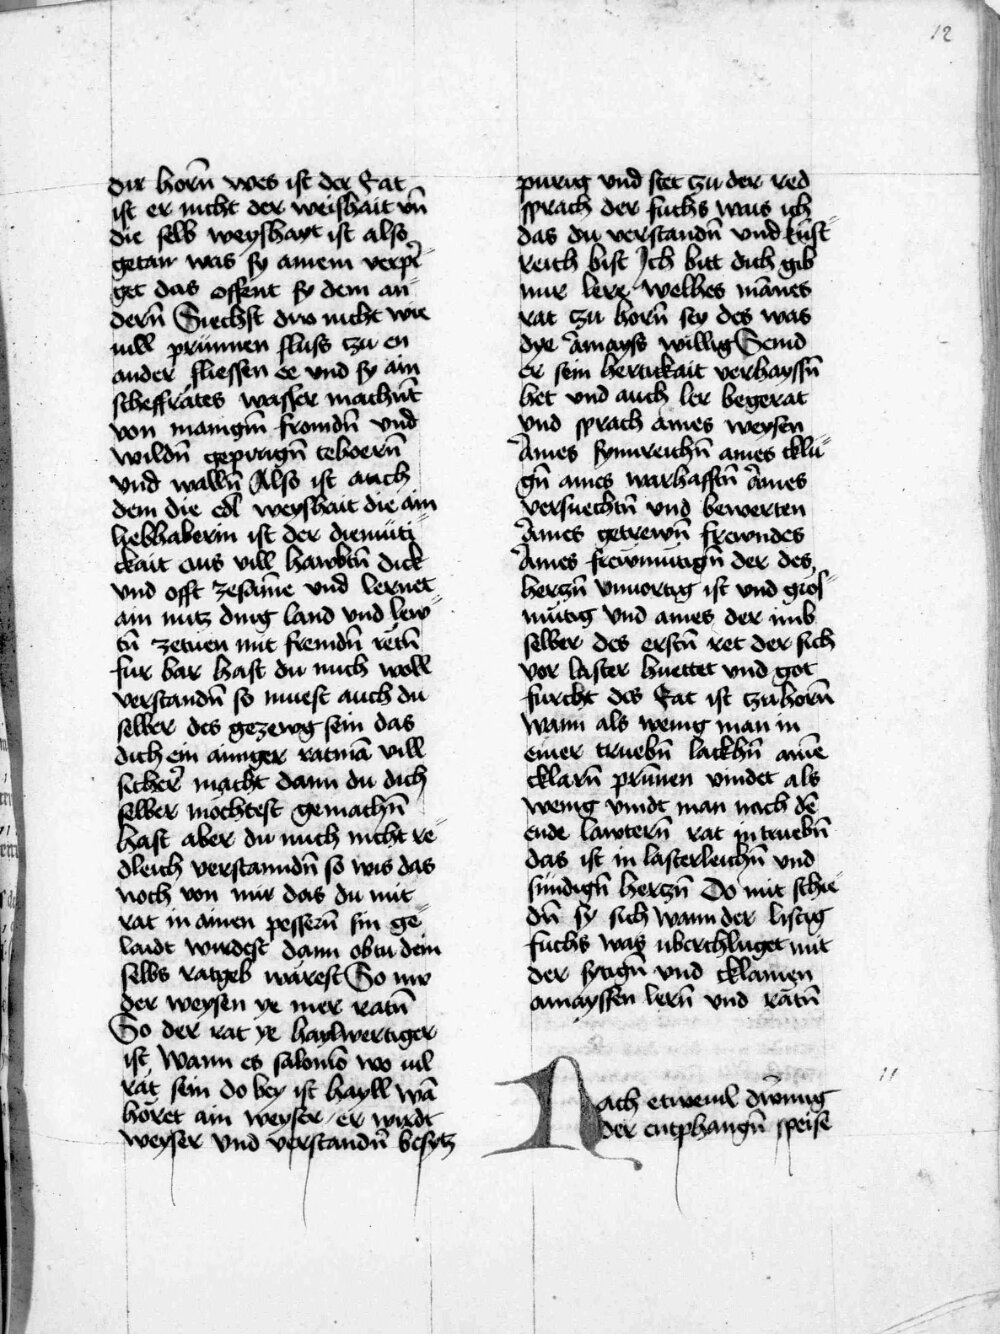 12
dir horn̄ wes ist der Rat
ist er nicht der weishait vn̄
die selb weyshayt ist also
getan was sy ainem verpir
get das offent sy dem an
dern̄ Siechst dw nicht wie
uill prünnen fluss zu en
ander fliessen ee und sy ain
scheffrätes wasser machent
von manign̄ fromdn̄ und
wildn̄ geprägn̄ tehoern̄
und walln̄ Also ist auch
dem die edl weyshait die ain
liebhaberin ist der diemüti
ckait aus vill hawbtn̄ dick
und offt zesame und lernet
ain nutz ding land und lew
tn̄ zetuen mit fremdn̄ retn̄
fur bar hast du mich woll
verstandn̄ so muest auch du
selber des gezewg sein das
dich ein ainiger ratmā vill
sicher macht dann du dich
selber mochtest gemachn̄
hast aber du mich nicht re
dleich verstanndn̄ so wis das
noch von mir das du mit
rat in ainen pessern̄ sin ge
laidt wirdest dann ob du dein
selbs ratgeb wärest So nw
der weysen ye mer ratn̄
So der rat ye haylwertiger
ist Wann es salomō wo uil
rät sein do bey ist hayll wā
höret ain weyser er wirdt
weyser und verstandn̄ besytz
purig und stet zu der red
sprach der fuchs wais ich
das du verstandn̄ und kunst
reich bist Ich bitt dich gib
mir lere welhes mānes
rat zu horn̄ sey des was
dye āmayss willig Seind
er sein hertickait verhayssn̄
het und auch ler begerat
und sprach aines weysen
Aines synnreichn̄ aines cklu
gn̄ aines warhafftn̄ aines
versuechtn̄ und bewerten
Aines getrewn̄ frewndes
Aines freymütign̄ der des
herczn̄ vnuortzg ist und gros
mütig und aines der imb
selber des erstn̄ ret der sich
vor laster huettet und got
furcht des Rat ist zuhorn̄
wann als wenig man in
einer truebn̄ lackhn̄ aine
cklarn̄ prunnen vindet als
wenig vindt man nach dē
ende lawtern̄ rat in truebn̄
das ist in lasterleichn̄ und
sündign̄ hertzn̄ Do mit schie
dn̄ sy sich wann der listig
fuchs was uberchluget mit
der sytign̄ und cklainen
amayssen lern̄ und rätn̄
11
Nach etweuil dwning
der entphangn̄ speise